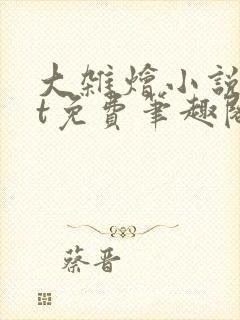 大雜燴小說
t免費筆趣閣
蔡晋